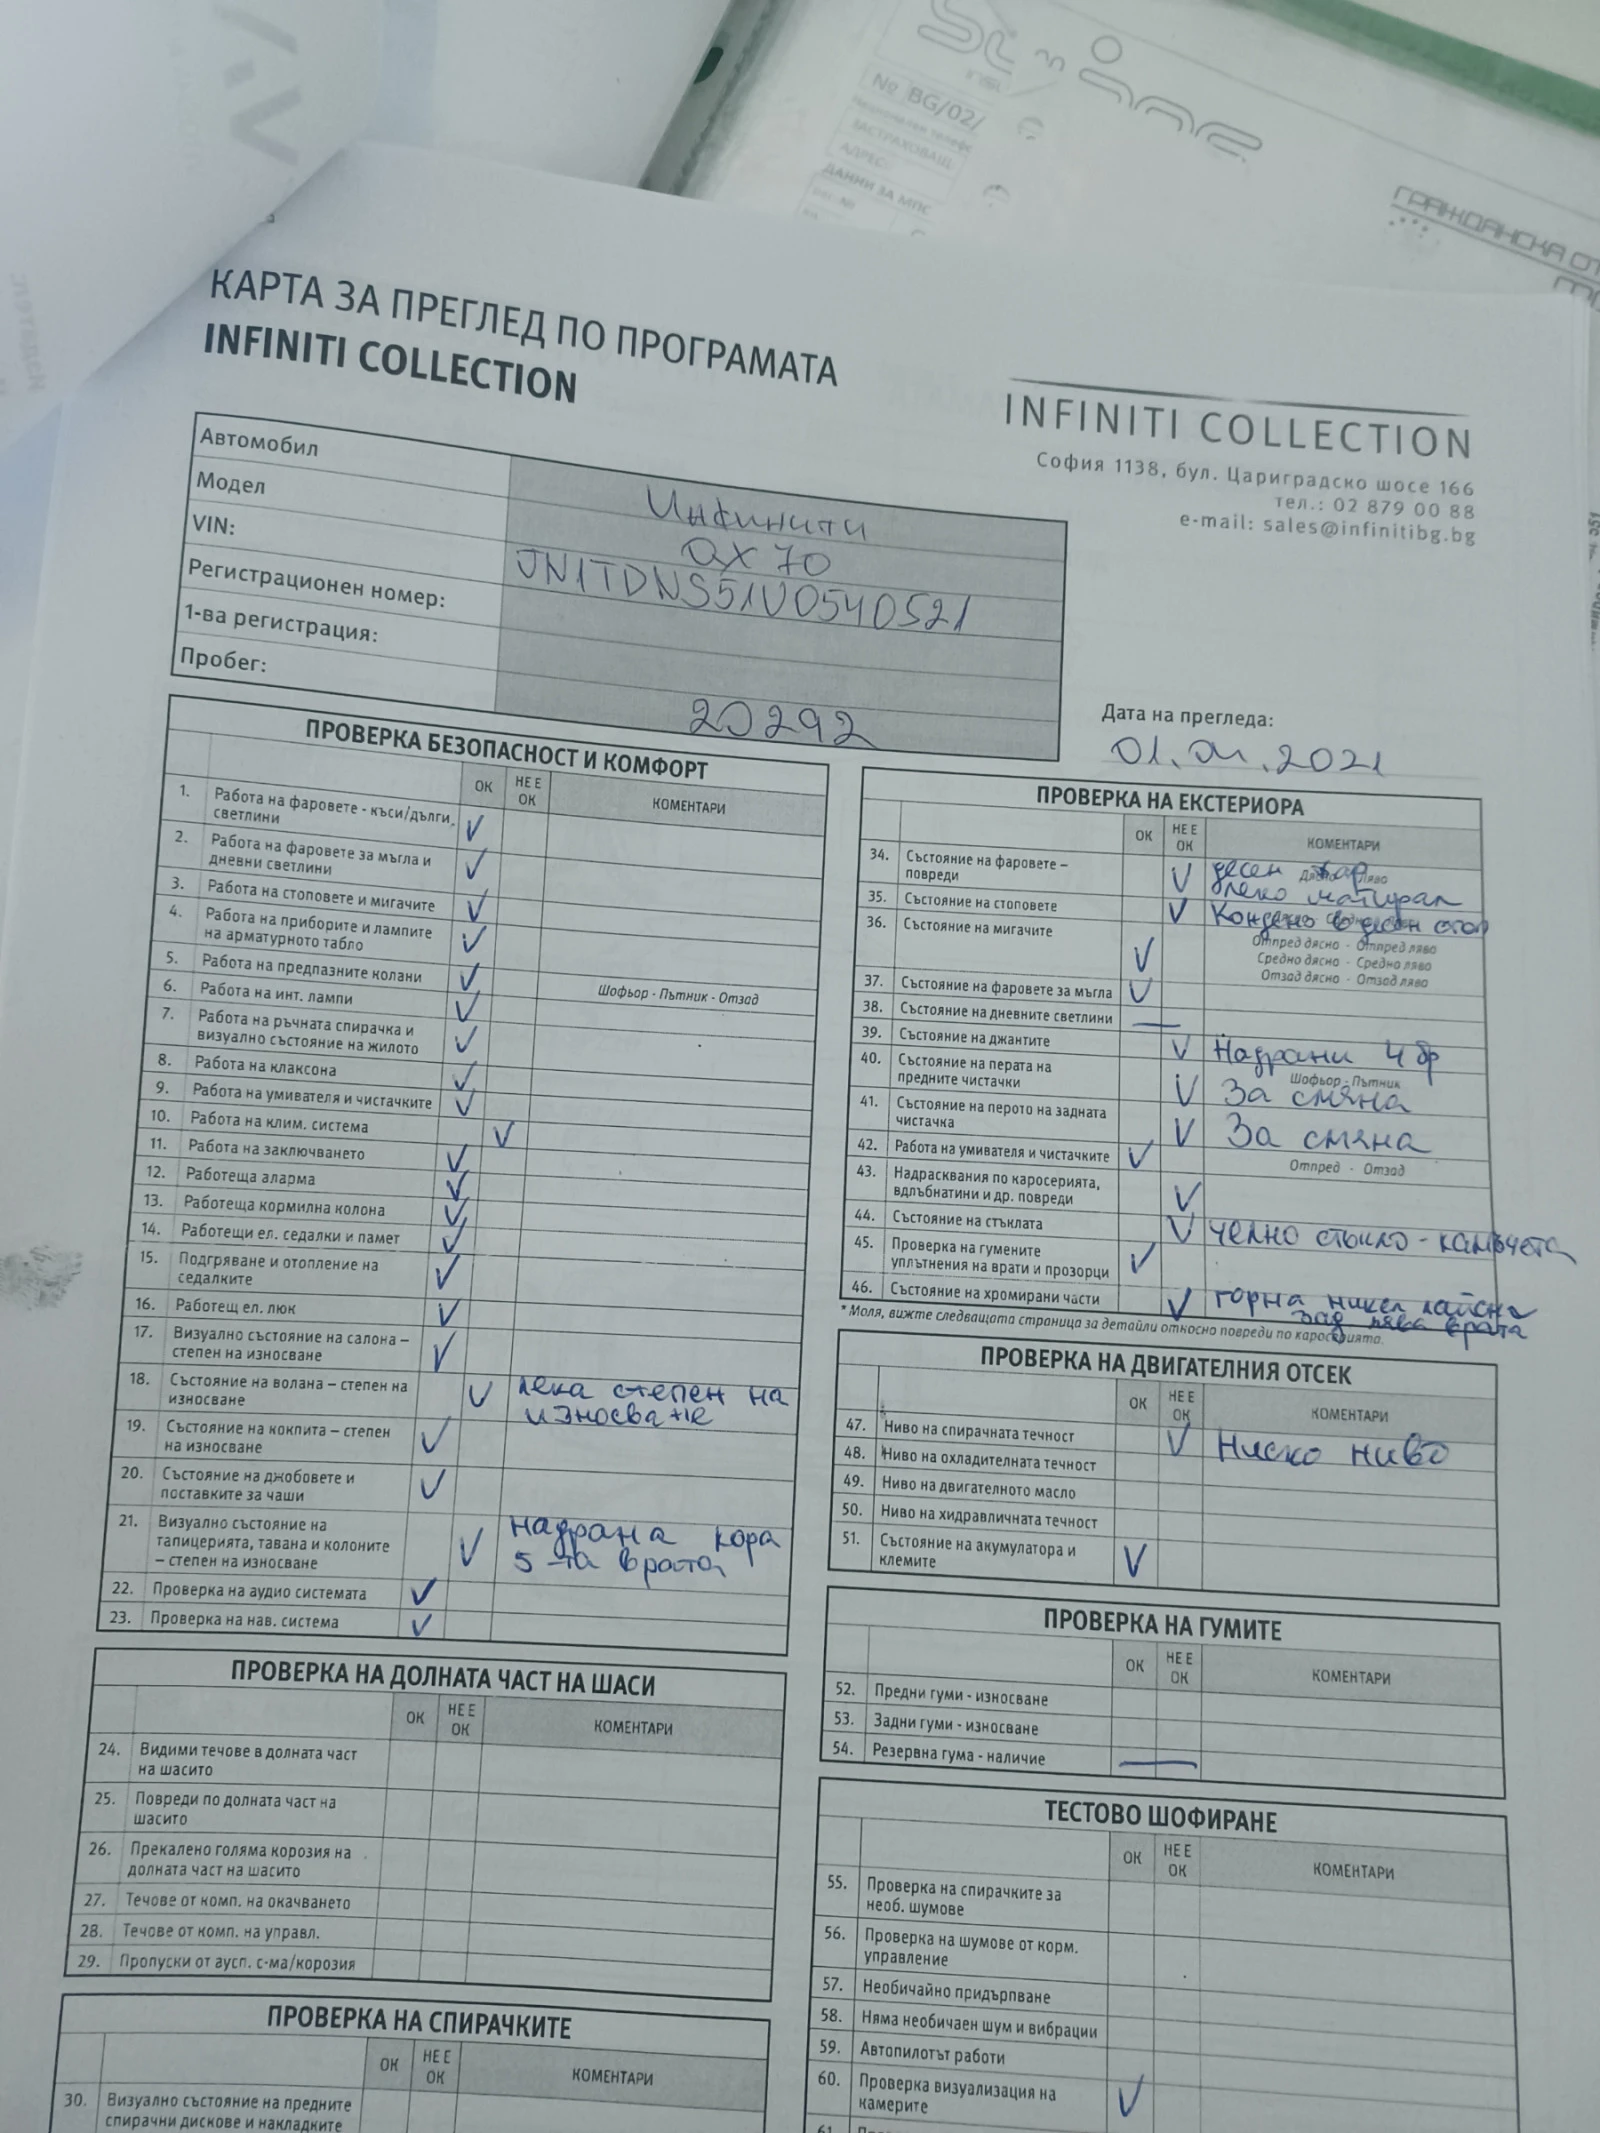 № BG/02/
ЗАСТРАХОВАЩ:
АДРЕС:
ДАННИ ЗА МПС
ГРАЖДАНСКА
КАРТА ЗА ПРЕГЛЕД ПО ПРОГРАМАТА
INFINITI COLLECTION
INFINITI COLLECTION
София 1138, бул. Цариградско шосе 166
тел.: 02 879 00 88
e-mail: sales@infinitibg.bg
Автомобил Инфинити
Модел QX 70
VIN: JN1TDNS51U0540521
Регистрационен номер:
1-ва регистрация:
Пробег: 20292
Дата на прегледа:
01.04.2021
ПРОВЕРКА БЕЗОПАСНОСТ И КОМФОРТ
ОК НЕ Е ОК КОМЕНТАРИ
1. Работа на фаровете - къси/дълги,
светлини
2. Работа на фаровете за мъгла и
дневни светлини
3. Работа на стоповете и мигачите
4. Работа на приборите и лампите
на арматурното табло
5. Работа на предпазните колани
Шофьор - Пътник - Отзад
6. Работа на инт. лампи
7. Работа на ръчната спирачка и
визуално състояние на жилото
8. Работа на клаксона
9. Работа на умивателя и чистачките
10. Работа на клим. система
11. Работа на заключването
12. Работеща аларма
13. Работеща кормилна колона
14. Работещи ел. седалки и памет
15. Подгряване и отопление на
седалките
16. Работещ ел. люк
17. Визуално състояние на салона –
степен на износване
18. Състояние на волана – степен на
износване
лека степен на
износване
19. Състояние на кокпита – степен
на износване
20. Състояние на джобовете и
поставките за чаши
21. Визуално състояние на
тапицерията, тавана и колоните
– степен на износване
надрана кора
5-та врата
22. Проверка на аудио системата
23. Проверка на нав. система
ПРОВЕРКА НА ДОЛНАТА ЧАСТ НА ШАСИ
ОК НЕ Е ОК КОМЕНТАРИ
24. Видими течове в долната част
на шасито
25. Повреди по долната част на
шасито
26. Прекалено голяма корозия на
долната част на шасито
27. Течове от комп. на окачването
28. Течове от комп. на управл.
29. Пропуски от аусп. с-ма/корозия
ПРОВЕРКА НА СПИРАЧКИТЕ
ОК НЕ Е ОК КОМЕНТАРИ
30. Визуално състояние на предните
спирачни дискове и накладките
ПРОВЕРКА НА ЕКСТЕРИОРА
ОК НЕ Е ОК КОМЕНТАРИ
34. Състояние на фаровете –
повреди
десен фар
леко матирал
35. Състояние на стоповете
Конденз в десен стоп
36. Състояние на мигачите
Отпред дясно - Отпред ляво
Средно дясно - Средно ляво
Отзад дясно - Отзад ляво
37. Състояние на фаровете за мъгла
38. Състояние на дневните светлини
39. Състояние на джантите Надрани 4 бр
40. Състояние на перата на
предните чистачки
Шофьор - Пътник
За смяна
41. Състояние на перото на задната
чистачка
За смяна
42. Работа на умивателя и чистачките
Отпред - Отзад
43. Надрасквания по каросерията,
вдлъбнатини и др. повреди
44. Състояние на стъклата челно стъкло - камъчета
45. Проверка на гумените
уплътнения на врати и прозорци
46. Състояние на хромирани части горна никел лайсна
зад лява врата
* Моля, вижте следващата страница за детайли относно повреди по каросерията.
ПРОВЕРКА НА ДВИГАТЕЛНИЯ ОТСЕК
ОК НЕ Е ОК КОМЕНТАРИ
47. Ниво на спирачната течност Ниско ниво
48. Ниво на охладителната течност
49. Ниво на двигателното масло
50. Ниво на хидравличната течност
51. Състояние на акумулатора и
клемите
ПРОВЕРКА НА ГУМИТЕ
ОК НЕ Е ОК КОМЕНТАРИ
52. Предни гуми - износване
53. Задни гуми - износване
54. Резервна гума - наличие
ТЕСТОВО ШОФИРАНЕ
ОК НЕ Е ОК КОМЕНТАРИ
55. Проверка на спирачките за
необ. шумове
56. Проверка на шумове от корм.
управление
57. Необичайно придърпване
58. Няма необичаен шум и вибрации
59. Автопилотът работи
60. Проверка визуализация на
камерите
61.